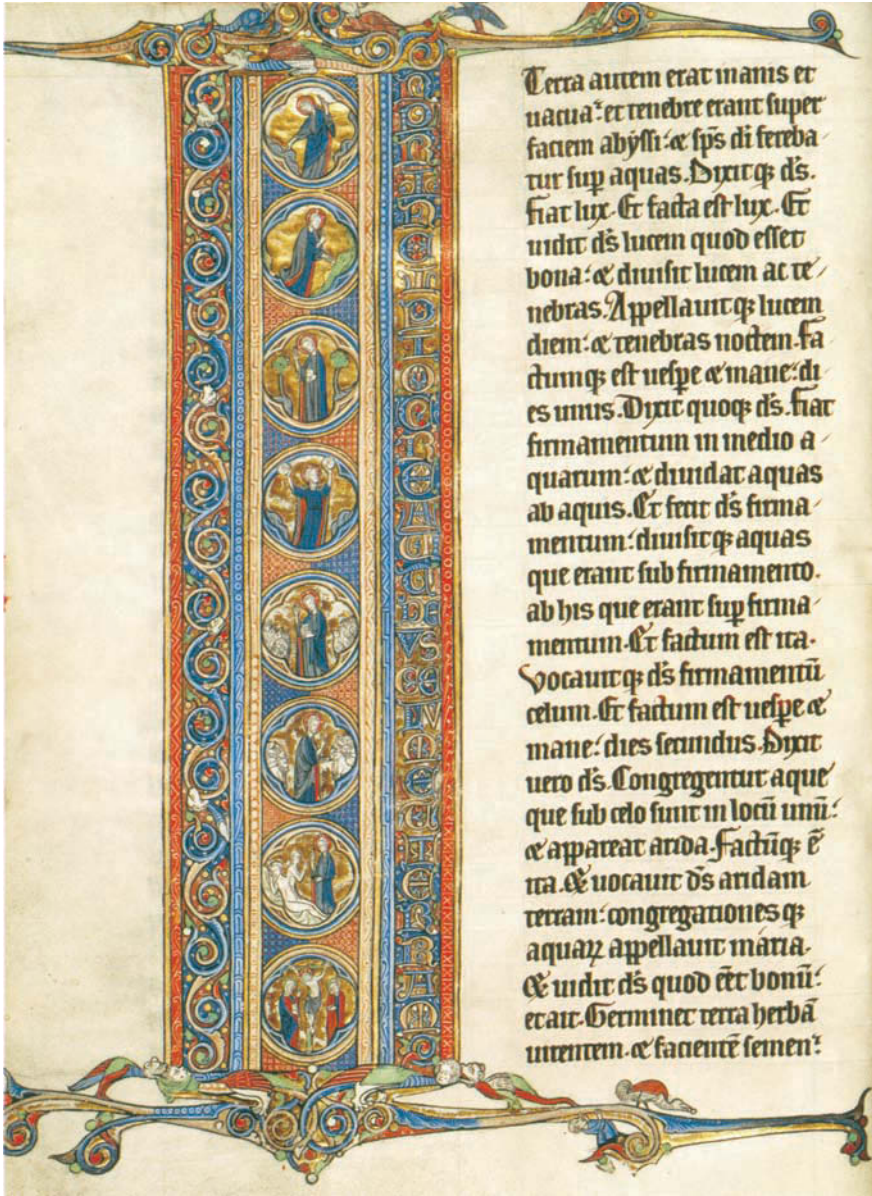 INPRINCIPIOCREAUITDEVSCELVMETTERRAM
Terra autem erat inanis et
uacua: et tenebre erant super
faciem abyssi: et sp̄s di fereba
tur sup aquas. Dixitq; ds.
fiat lux. Et facta est lux. Et
uidit ds lucem quod esset
bona: et diuisit lucem ac te/
nebras. Appellauitq; lucem
diem: et tenebras noctem. fa
ctumq; est uespe et mane: di
es unus. Dixit quoq; ds. fiat
firmamentum in medio a/
quarum: et diuidat aquas
ab aquis. Et fecit ds firma/
mentum: diuisitq; aquas
que erant sub firmamento.
ab his que erant sup firma/
mentum. Et factum est ita.
Vocauitq; ds firmamentū
celum. Et factum est uespe et
mane: dies secundus. Dixit
uero ds. Congregentur aque
que sub celo sunt in locū unū:
et appareat arida. factūq; ē
ita. Et uocauit ds aridam
terram: congregationes q;
aquaꝝ appellauit maria.
Et uidit ds quod eēt bonū:
et ait. Germinet terra herbā
uirentem. et facientē semen: